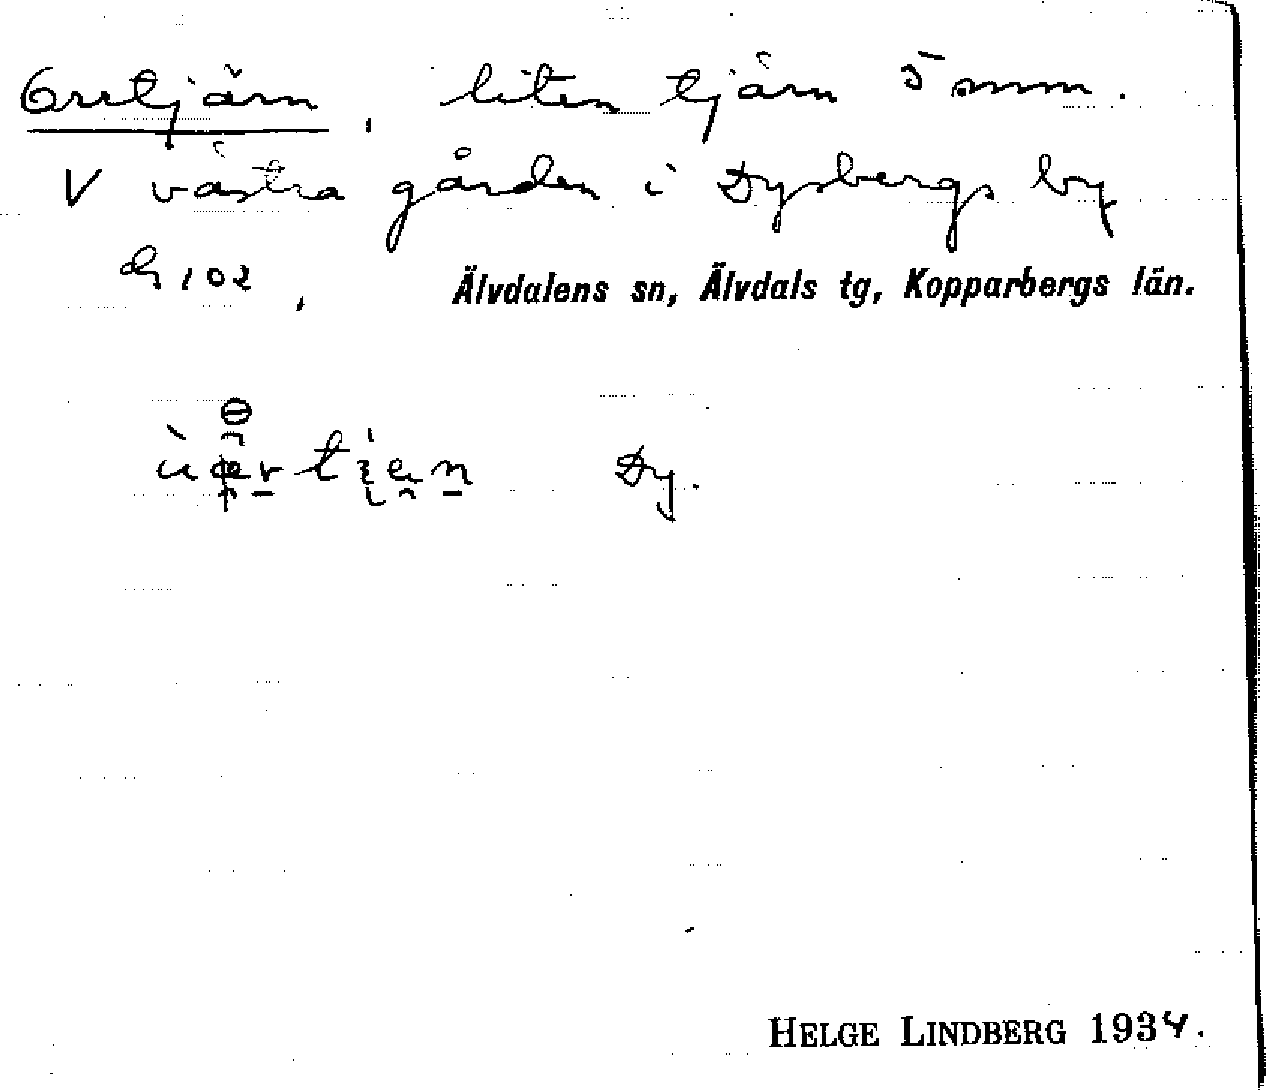 Orrtjärn, liten tjärn 5 mm.
V västra gården i Dysbergs by
102, Älvdalens sn, Älvdals tg, Kopparbergs län.
Dy.
HELGE LINDBERG 1934.